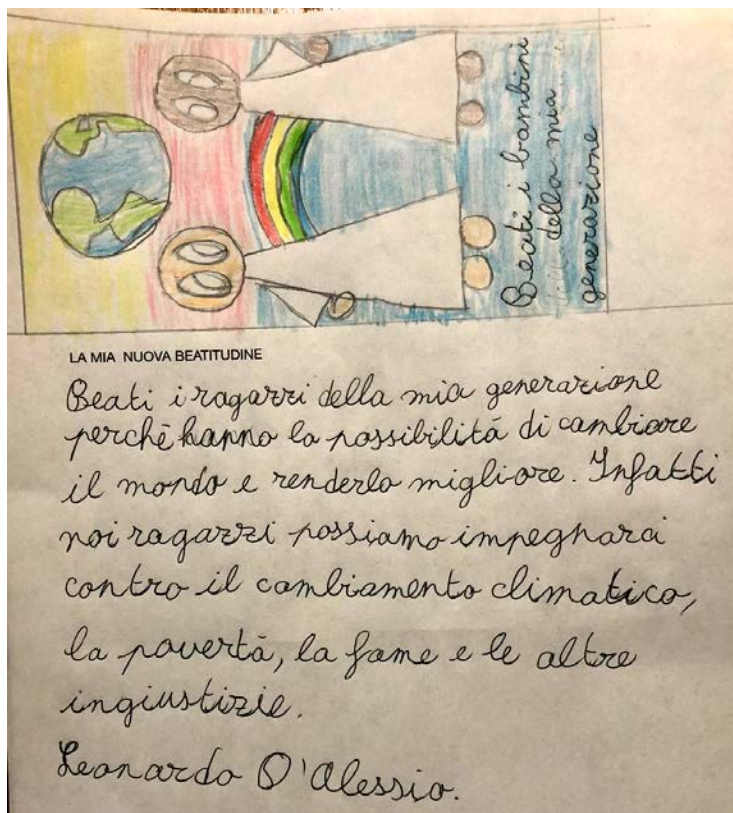 Beati i bambini
della mia
generazione
LA MIA NUOVA BEATITUDINE
Beati i ragazzi della mia generazione
perchè hanno la possibilità di cambiare
il mondo e renderlo migliore. Infatti
noi ragazzi possiamo impegnarci
contro il cambiamento climatico,
la povertà, la fame e le altre
ingiustizie.
Leonardo D'Alessio.